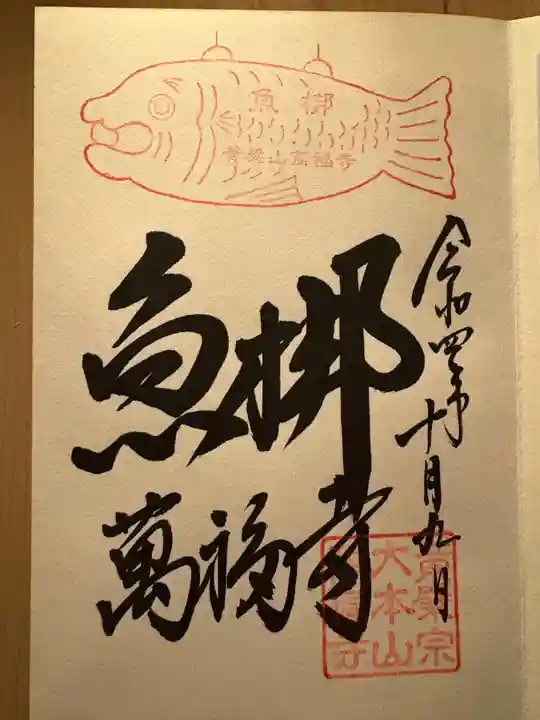 魚梆
黄檗山萬福寺
魚梆
萬福寺
令和四年十月九日
黄檗宗
大本山
萬福寺